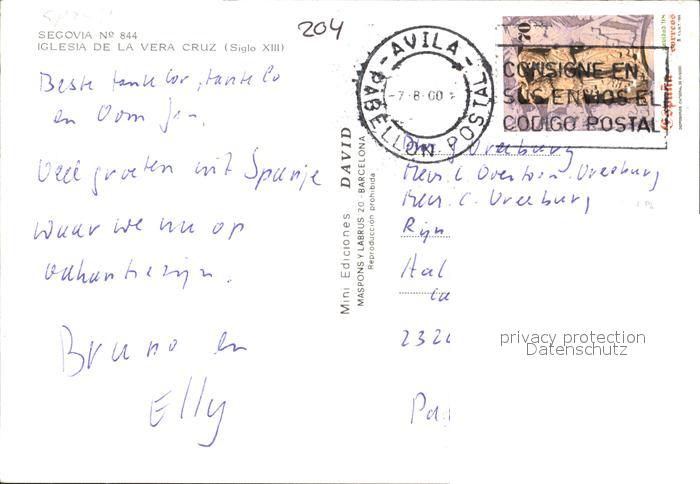 204
SEGOVIA Nº 844
IGLESIA DE LA VERA CRUZ (Siglo XIII)
Beste tante Cor, tante Co
en Oom Jan.
Veel groeten uit Spanje
waar we nu op
vakantie zijn.
Bruno en
Elly
Mini Ediciones DAVID
MASPONS Y LABRUS 20 - BARCELONA
Reproducción prohibida
- AVILA -
-7-8-00
PABELLON POSTAL
70
correos
España
CONSIGNE EN
SUS ENVIOS EL
CODIGO POSTAL
Vreeburg
Mevr. C. Overtoom-Vreeburg
Mevr. C. Vreeburg
Rijn
Hal
232
privacy protection
Datenschutz
Pa